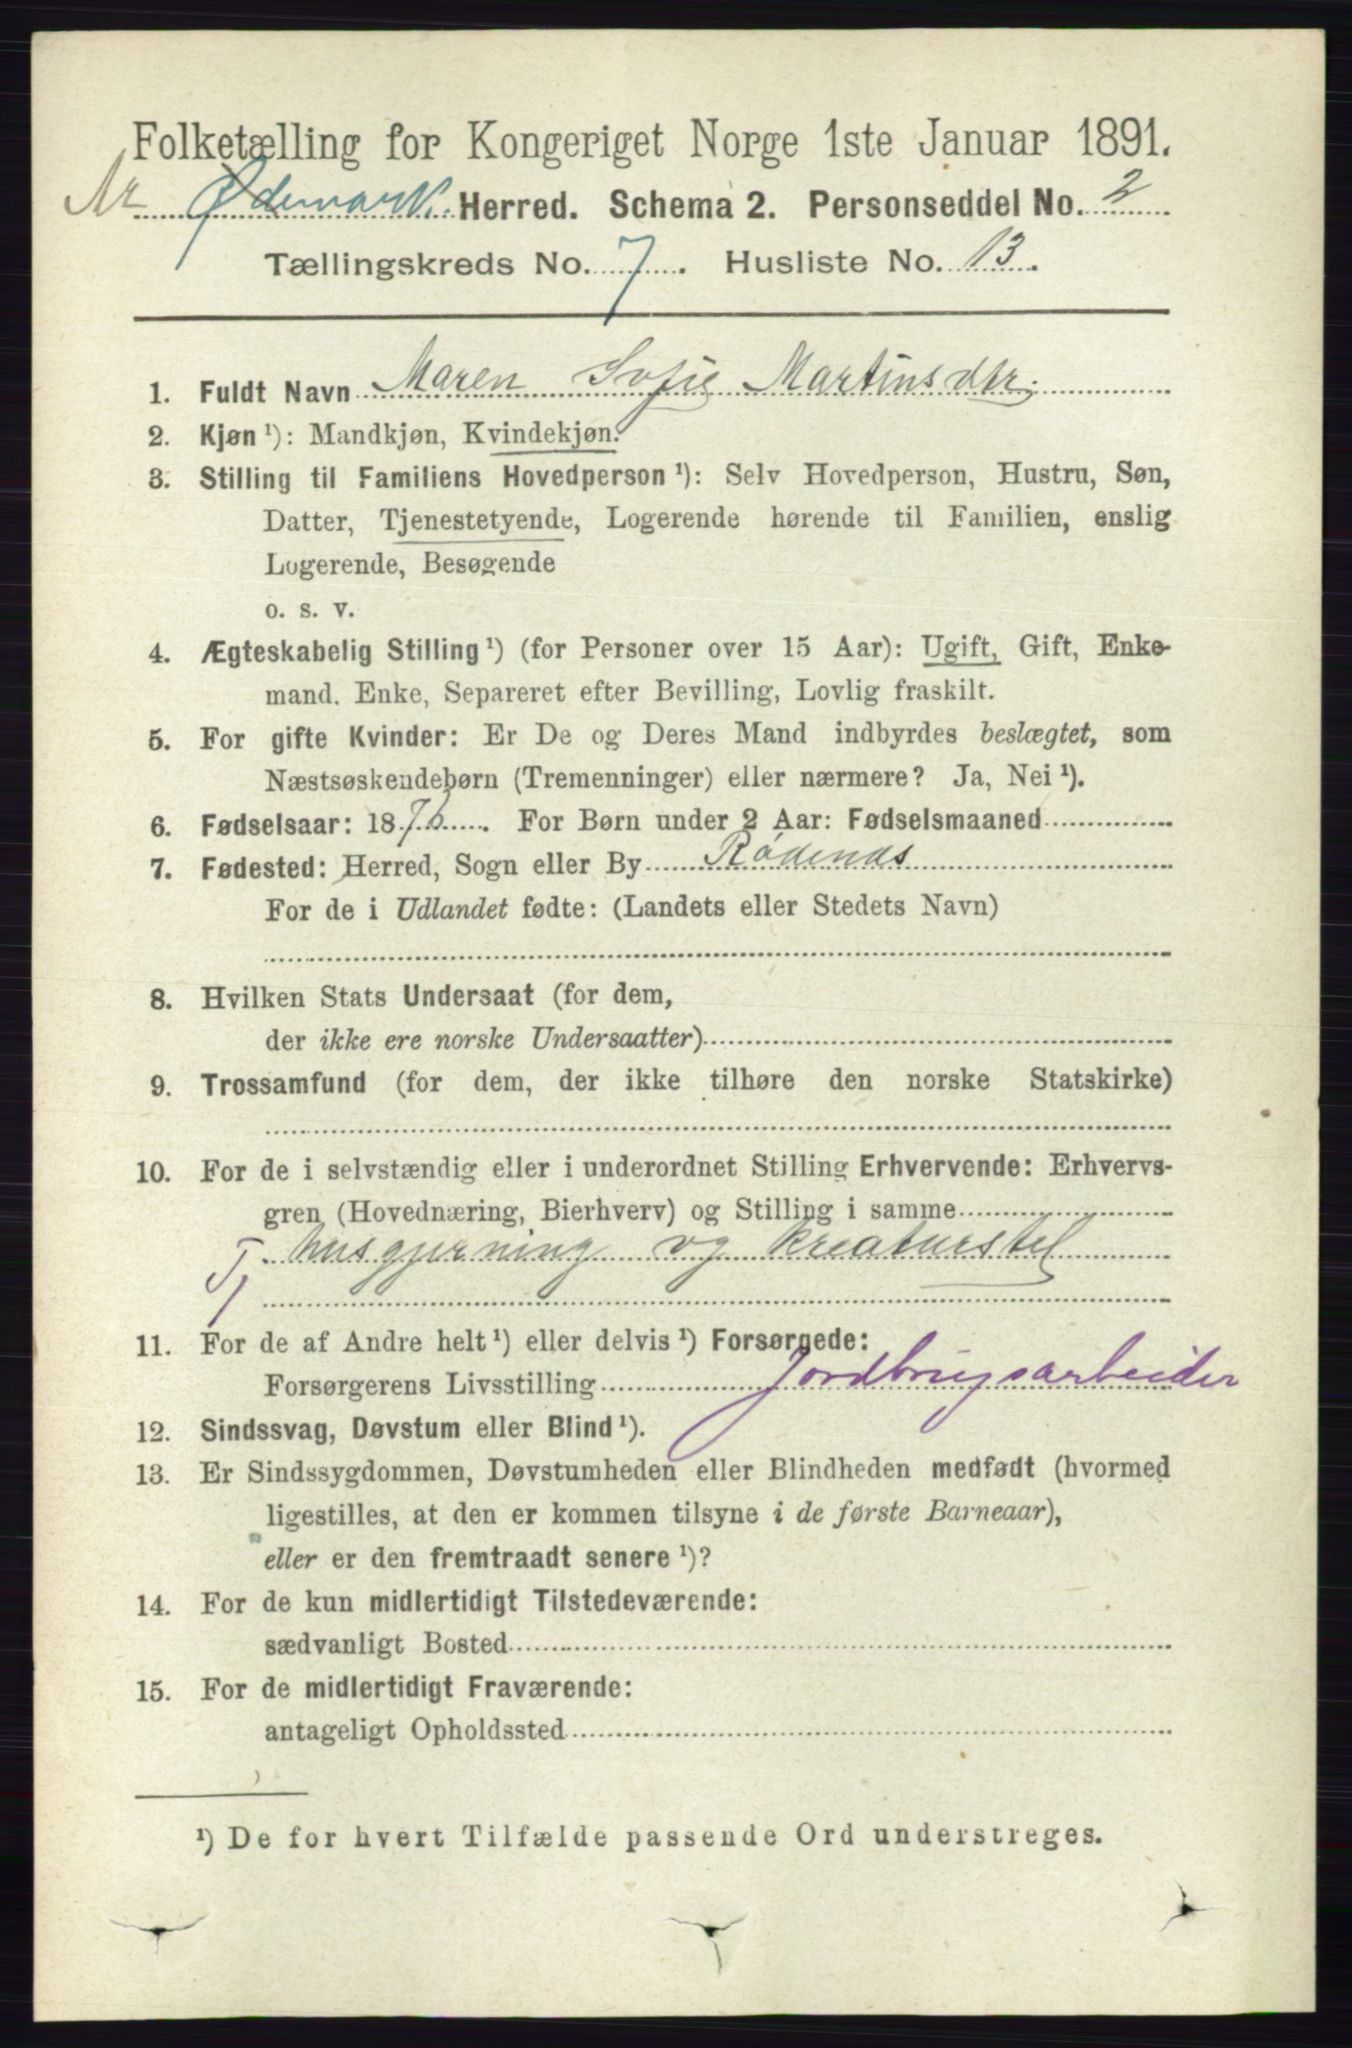 Folketælling for Kongeriget Norge 1ste Januar 1891.
Ødemark Herred. Schema 2. Personseddel No. 2
Tællingskreds No. 7. Husliste No. 13.
1. Fuldt Navn Maren Sofie Martinsdtr.
2. Kjøn ¹): Mandkjøn, Kvindekjøn.
3. Stilling til Familiens Hovedperson ¹): Selv Hovedperson, Hustru, Søn,
Datter, Tjenestetyende, Logerende hørende til Familien, enslig
Logerende, Besøgende
o. s. v.
4. Ægteskabelig Stilling ¹) (for Personer over 15 Aar): Ugift, Gift, Enke-
mand, Enke, Separeret efter Bevilling, Lovlig fraskilt.
5. For gifte Kvinder: Er De og Deres Mand indbyrdes beslægtet, som
Næstsøskendebørn (Tremenninger) eller nærmere? Ja, Nei ¹).
6. Fødselsaar: 1876. For Børn under 2 Aar: Fødselsmaaned
7. Fødested: Herred, Sogn eller By Rödenæs
For de i Udlandet fødte: (Landets eller Stedets Navn)
8. Hvilken Stats Undersaat (for dem,
der ikke ere norske Undersaatter)
9. Trossamfund (for dem, der ikke tilhøre den norske Statskirke)
10. For de i selvstændig eller i underordnet Stilling Erhvervende: Erhvervs-
gren (Hovednæring, Bierhverv) og Stilling i samme
Tj husgjerning og kreaturstel
11. For de af Andre helt ¹) eller delvis ¹) Forsørgede:
Forsørgerens Livsstilling Jordbrugsarbeider
12. Sindssvag, Døvstum eller Blind ¹).
13. Er Sindssygdommen, Døvstumheden eller Blindheden medfødt (hvormed
ligestilles, at den er kommen tilsyne i de første Barneaar),
eller er den fremtraadt senere ¹)?
14. For de kun midlertidigt Tilstedeværende:
sædvanligt Bosted
15. For de midlertidigt Fraværende:
antageligt Opholdssted
¹) De for hvert Tilfælde passende Ord understreges.